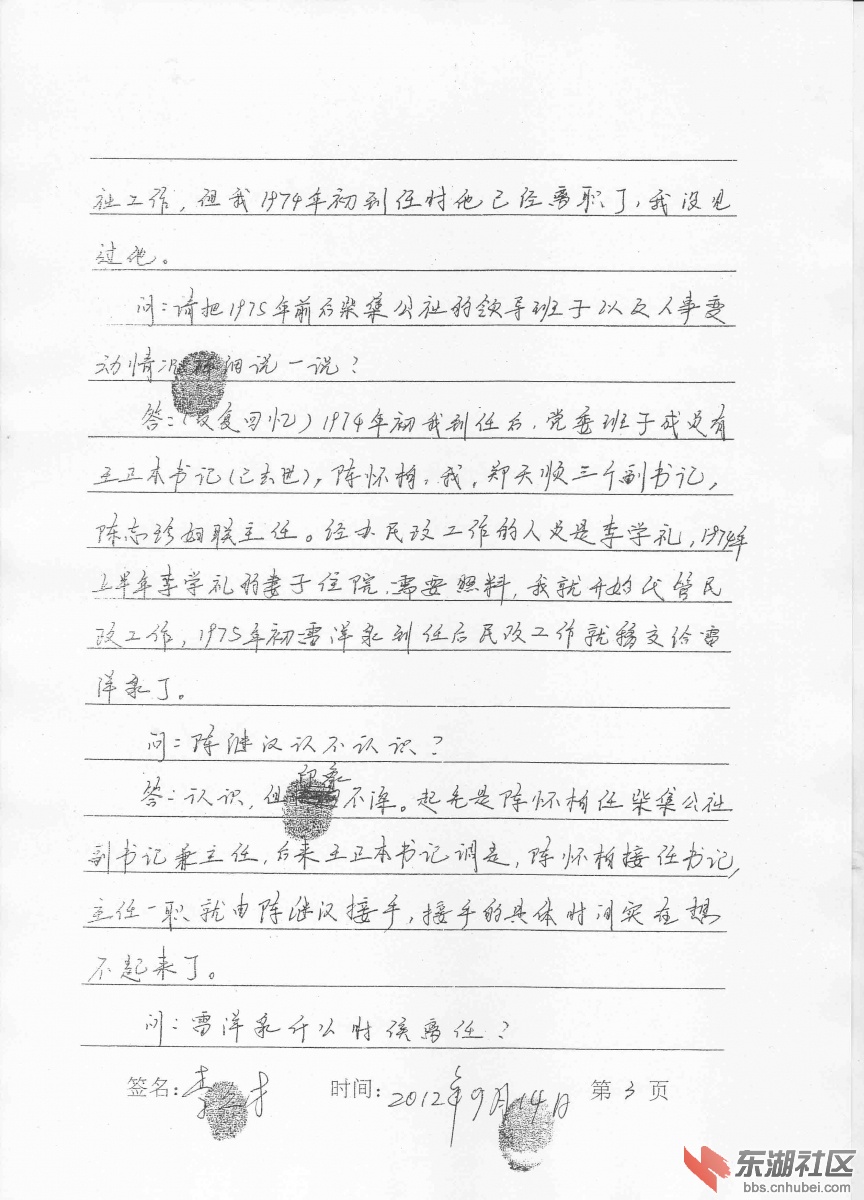 社工作，但我1974年初到任时他已经离职了，我没见
过他。
问：请把1975年前后柴集公社的领导班子以及人事变
动情况详细说一说？
答：（反复回忆）1974年初我到任后，党委班子成员有
王卫本书记（已去世），陈怀柏，我，郑天顺三个副书记，
陈志珍妇联主任。经办民政工作的人员是李学礼，1974年
上半年李学礼的妻子住院，需要照料，我就开始代管民
政工作，1975年初雷泽永到任后民政工作就移交给雷
泽永了。
问：陈继汉认不认识？
印象
答：认识，但不深。起先是陈怀柏任柴集公社
副书记兼主任，后来王卫本书记调走，陈怀柏接任书记，
主任一职就由陈继汉接手，接手的具体时间实在想
不起来了。
问：雷泽永什么时候离任？
签名：李 才 时间：2012年9月14日 第3页
东湖社区
bbs.cnhubei.com